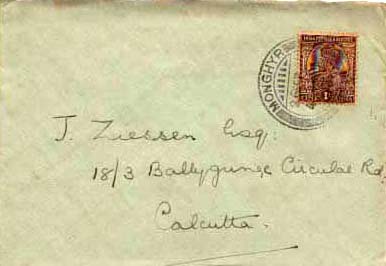 MONGHYR
1
J. Ziessen Esq:
18/3 Ballygunge Circular Rd,
Calcutta.